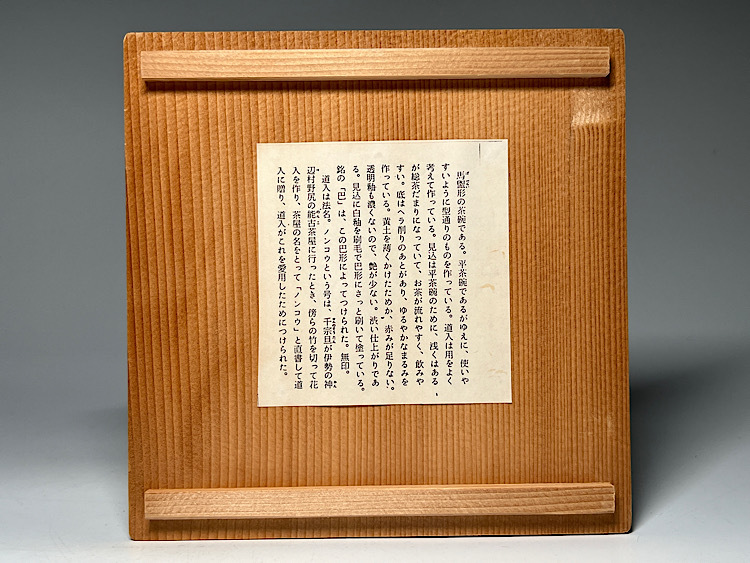 馬盥形の茶碗である。平茶碗であるがゆえに、使いや
すいように型通りのものを作っている。道入は用をよく
考えて作っている。見込は平茶碗のために、浅くはある
が総茶だまりになっていて、お茶が流れやすく、飲みや
すい。底はヘラ削りのあとがあり、ゆるやかなまるみを
作っている。黄土を薄くかけたためか、赤みが足りない。
透明釉も濃くないので、艶が少ない。渋い仕上がりであ
る。見込に白釉を刷毛で巴形にさっと刷いて塗っている。
銘の「巴」は、この巴形によってつけられた。無印。
道入は法名。ノンコウという号は、千宗旦が伊勢の神
辺村野尻の能古茶屋に行ったとき、傍らの竹を切って花
入を作り、茶屋の名をとって「ノンコウ」と直書して道
入に贈り、道入がこれを愛用したためにつけられた。